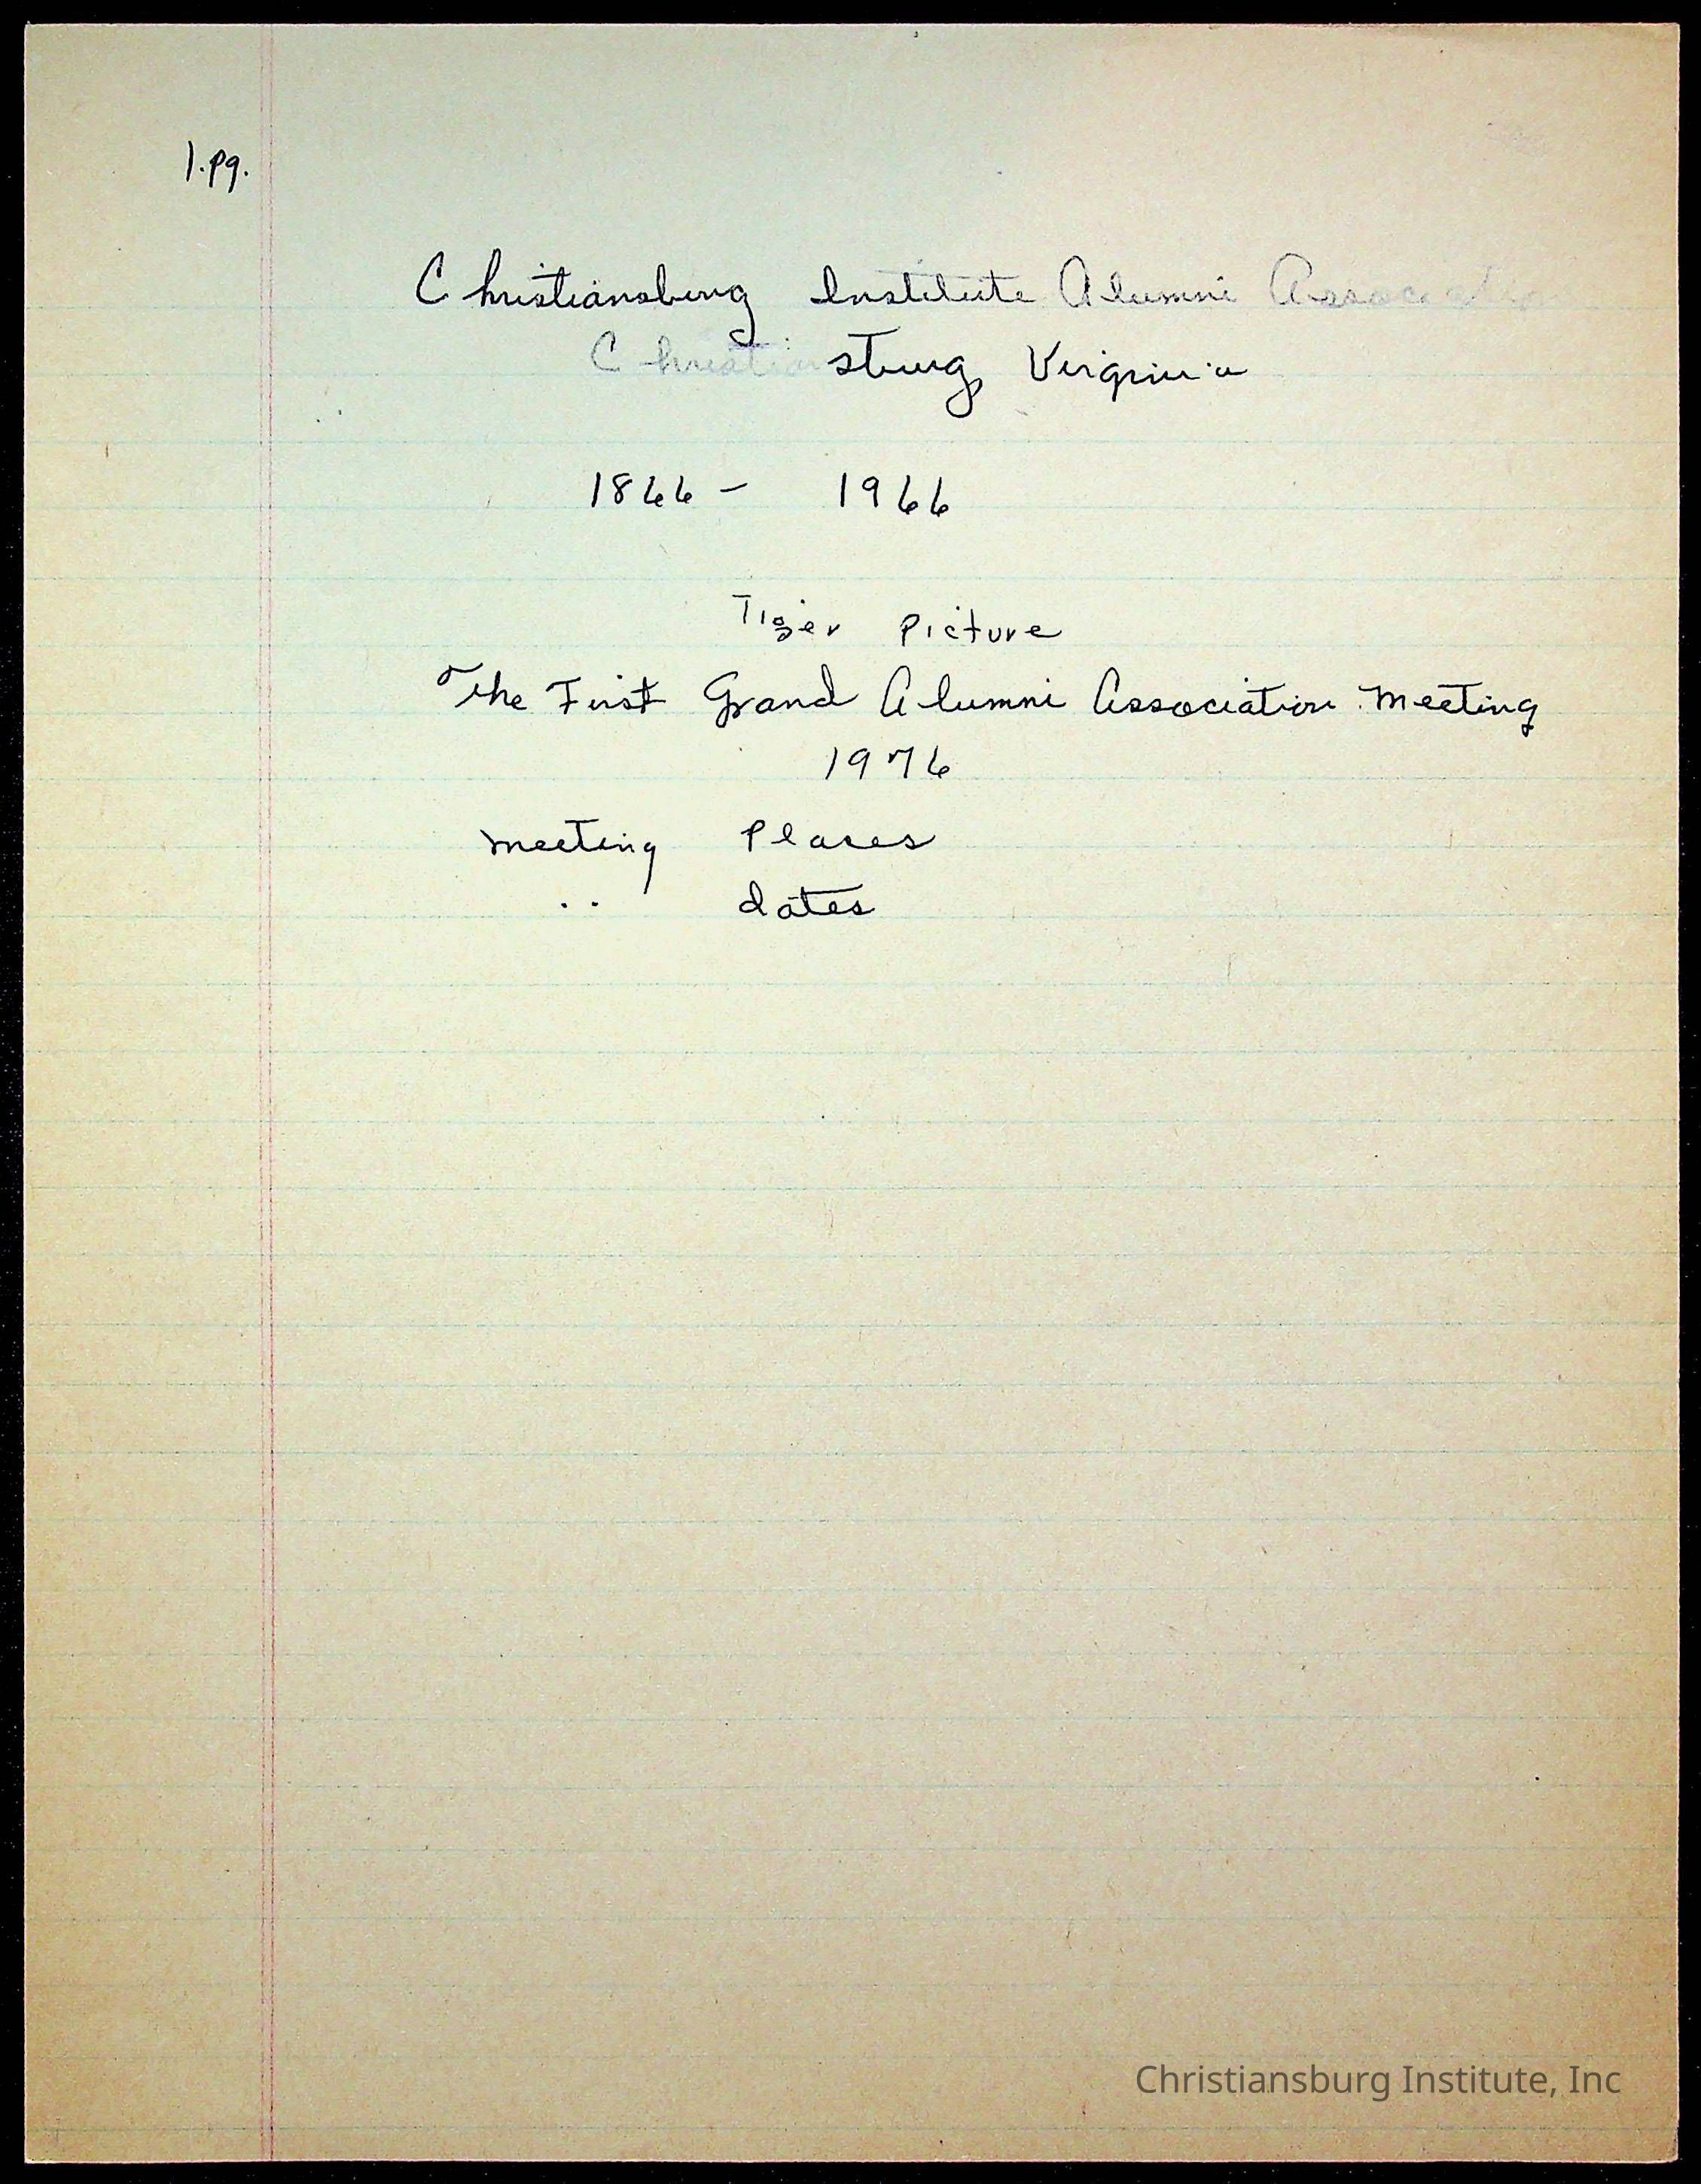 1.pg.
Christiansburg Institute Alumni Associatio
Christiansburg, Virginia
1866 - 1966
Tiger Picture
The First Grand Alumni Association Meeting
1976
meeting Places
.. dates
Christiansburg Institute, Inc